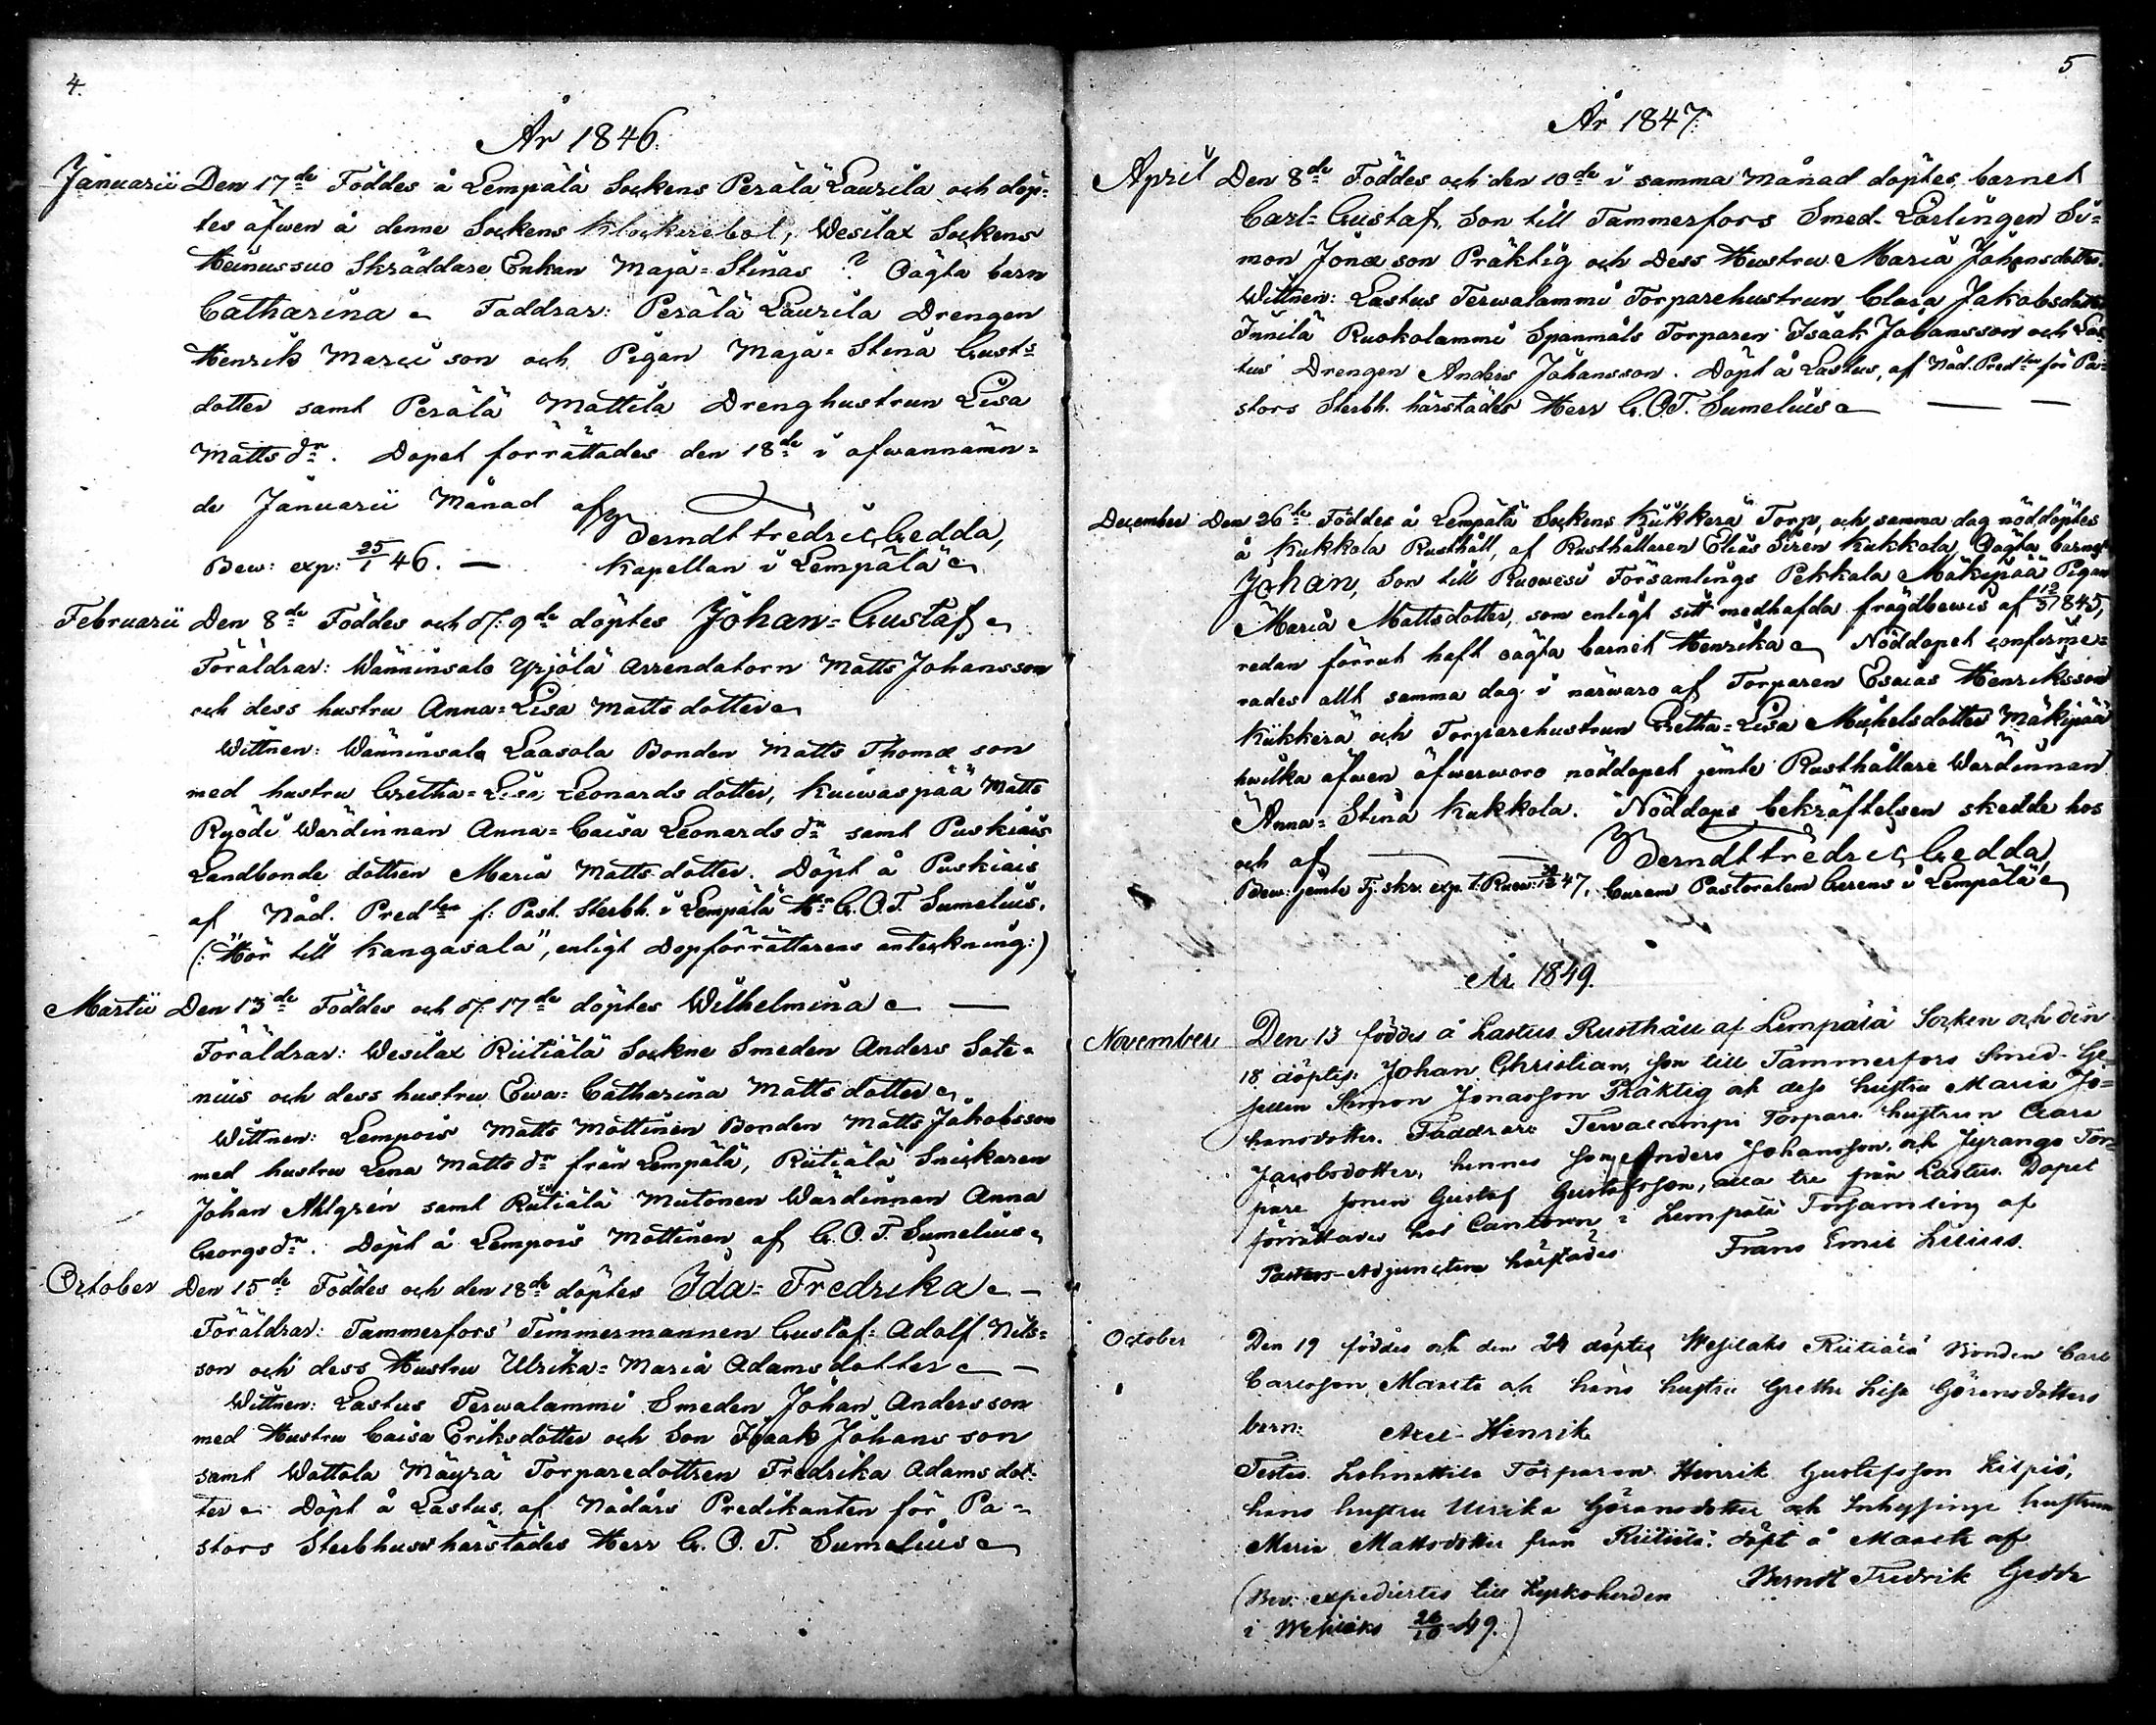 4.
År 1846.
Januarii Den 17de Föddes å Lempälä Sockens Perälä Laurila och döp=
tes äfwen å denne Sockens Klockarebol, Wesilax Sockens
Heinussuo Skräddare Enkan Maja=Stinas ? Oägta barn
Catharina. Faddrar: Perälä Laurila Drengen
Henrik Mariæ son och Pigan Maja=Stina Gust=
dotter samt Perälä Mattila Drenghustrun Lisa
Matts dr. Dopet förrättades den 18de i ofwannämn=
de Januarii Månad af
Berndt Fredric Gedda,
Bew: exp: 25/1 46. — Kapellan i Lempälä
Februarii Den 8de Föddes och d. 9de döptes Johan=Gustaf
Föräldrar: Wänninsalo Yrjölä Arrendatorn Matts Johansson
och dess hustru Anna=Lisa Mattsdotter
Wittnen: Wänninsalo Laasola Bonden Matts Thomæ son
med hustru Gretha=Lisa Leonards dotter, Kuiwaspää Matts
Ryödi Wärdinnan Anna=Caisa Leonards dr samt Puskiais
Landbonde dottren Maria Matts dotter. Döpt å Puskiais
af Nåd. Predten f: Past. Sterbh. i Lempälä Hr G.O.T. Sumelius.
(: "Hör till Kangasala", enligt Dopförrättarens anteckning:)
Martii Den 13de Föddes och d. 17de döptes Wilhelmina —
Föräldrar: Wesilax Riitiälä Sockne Smeden Anders Sate=
nius och dess hustru Ewa=Catharina Matts dotter
Wittnen: Lempois Matts Mattinen Bonden Matts Jakobsson
med hustru Lena Matts dr från Lempälä, Riitiälä Snickaren
Johan Ahlgrén samt Riitiälä Mutonen Wärdinnan Anna
Georgsdr. Döpt å Lempois Mattinen af G.O.T. Sumelius
October Den 15de Föddes och den 18de döptes Ida=Fredrika —
Föräldrar: Tammerfors' Timmermannen Gustaf=Adolf Nils=
son och dess Hustru Ulrika=Maria Adamsdotter —
Wittnen: Lastus Terwalammi Smeden Johan Andersson
med Hustru Caisa Eriksdotter och Son Isaak Johansson
samt Wattola Mäyrä Torparedottren Fredrika Adamsdot=
ter. Döpt å Lastus, af Nådårs Predikanten för Pa=
stors Sterbhuset härstädes Herr G. O. T. Sumelius
5
År 1847.
April Den 8de Föddes och den 10de i samma Månad döptes barnet
Carl=Gustaf, Son till Tammerfors Smed-Lärlingen Si=
mon Jonæson Präktig och dess Hustru Maria Johansdotter.
Wittnen: Lastus Terwalammi Torparehustrun Clara Jakobsdotter
Innilä Ruokolammi Spanmåls Torparen Isaak Johansson och Las=
tus Drengen Anders Johansson. Döpt å Lastus, af Nåd. Predten för Pa=
stors Sterbh. härstädes Herr G. O. T. Sumelius — —
December Den 26de Föddes å Lempälä Sockens Kükkerä Torp, och samma dag nöddöptes
å Kukkola Rusthåll, af Rusthållaren Elias Sirén Kukkola, Oägta barnet
Johan, Son till Ruowesi Församlings Pekkala Mäkipää Pigan
Maria Mattsdotter, som enligt sitt medhafda frägdbewis af 12/5 1845,
redan förrut haft oägta barnet Henrika. Nöddopet confirme=
rades allt samma dag i närwaro af Torparen Esaias Henriksson
Kükkerä och Torparehustrun Gretha=Lisa Michelsdotter Mäkipää
hwilka äfwen öfwerworo nöddopet jemte Rusthållare Wärdinnan
Anna=Stina Kukkola. Nöddops bekräftelsen skedde hos
och af — — Berndt Fredric Gedda,
Bew. jemte Tj. skr. exp. t. Ruow: 47. Curam Pastoralem Gerens i Lempälä
År 1849.
November Den 13 föddes å Lastus Rusthåll af Lempälä Socken och den
18 döptes: Johan Christian, Son till Tammerfors Smed-Ge=
sellen Simon Jonasson Präktig och dess hustru Maria Jo=
hansdotter. Faddrare Terwalampi Torpare hustrun Clara
Jacobsdotter, hennes son Anders Johansson, och Jyrango Tor=
pare sonen Gustaf Gustafsson, alla tre från Lastus. Dopet
förrättades hos Cantorn i Lempälä Församling af
Pastors-Adjuncten härstädes Frans Emil Lilius.
October Den 19 föddes och den 24 döptes Wesilaks Riitiälä Bonden Carl
Carlsson Marets och hans hustru Gretha Lisa Göransdotters
barn: Axel-Henrik
Testes. Torparen Henrik Gustafsson Kilpiö,
hans hustru Ulrika Göransdotter och Inhysinge hustrun
Maria Mattsdotter från Riitiälä. Döpt å af
Berndt Fredrik Gedda
(Bev: expediertes till Kyrkoherden
i Wesilaks 26/10 49.)